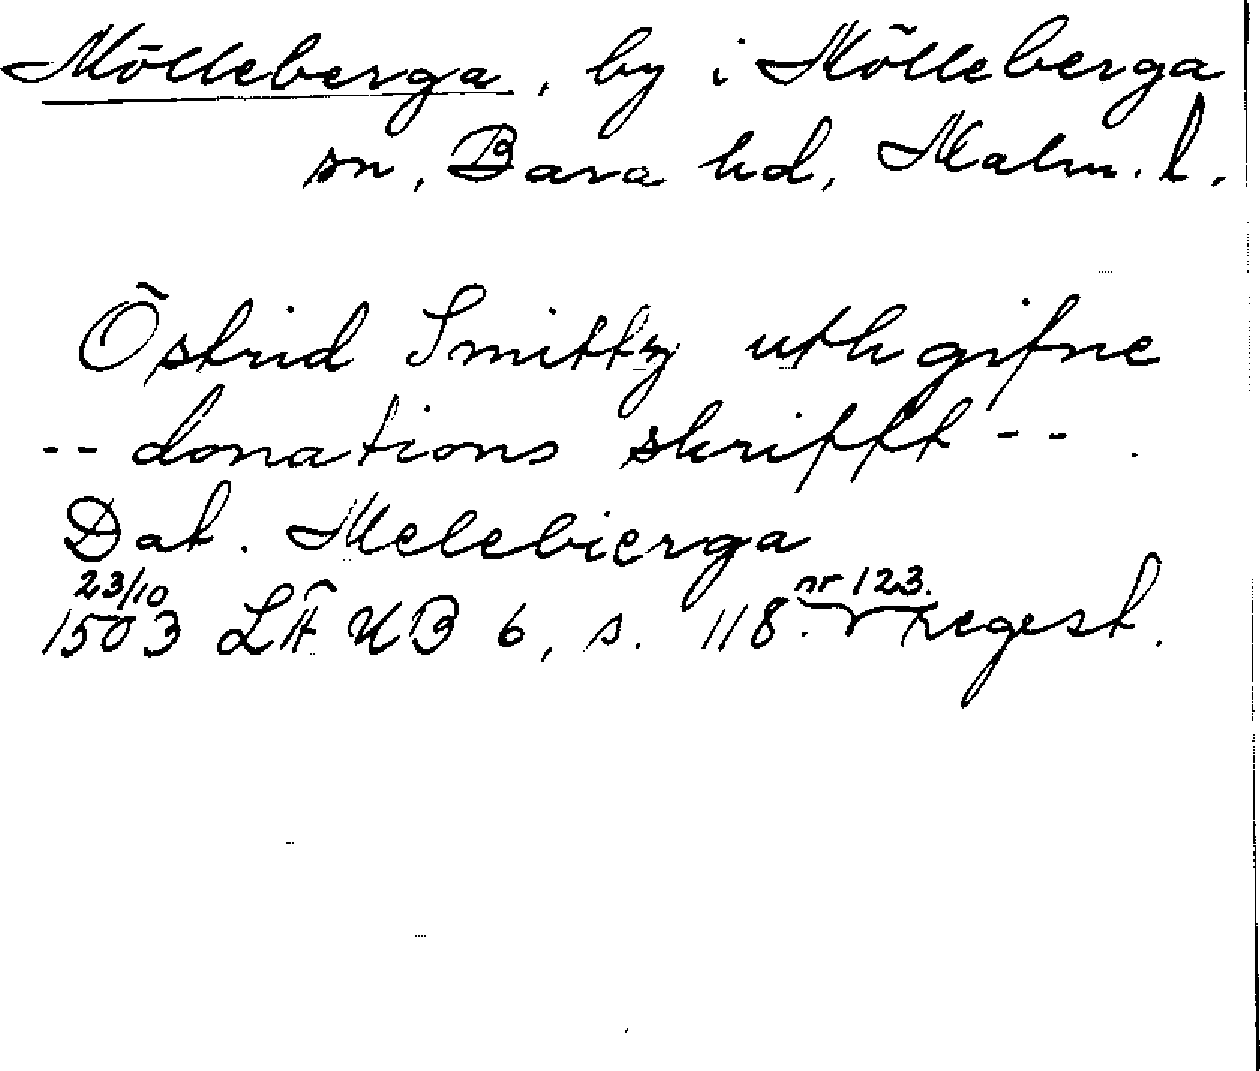 Mölleberga, by i Mölleberga
sn, Bara hd, Malm. l.
Östrid Smittz uthgifne
-- donations skrifft --.
Dat. Melebierga
23/10 nr 123.
1503 LÄUB 6, s. 118. regest.